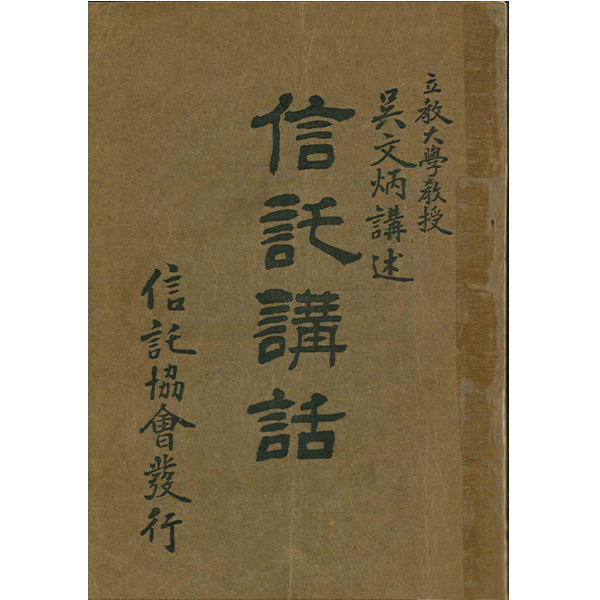 立教大學教授
吳文炳講述
信託講話
信託協會發行